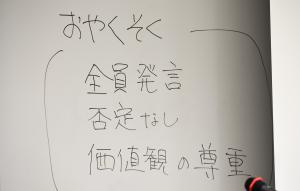 おやくそく
全員発言
否定なし
価値観の尊重